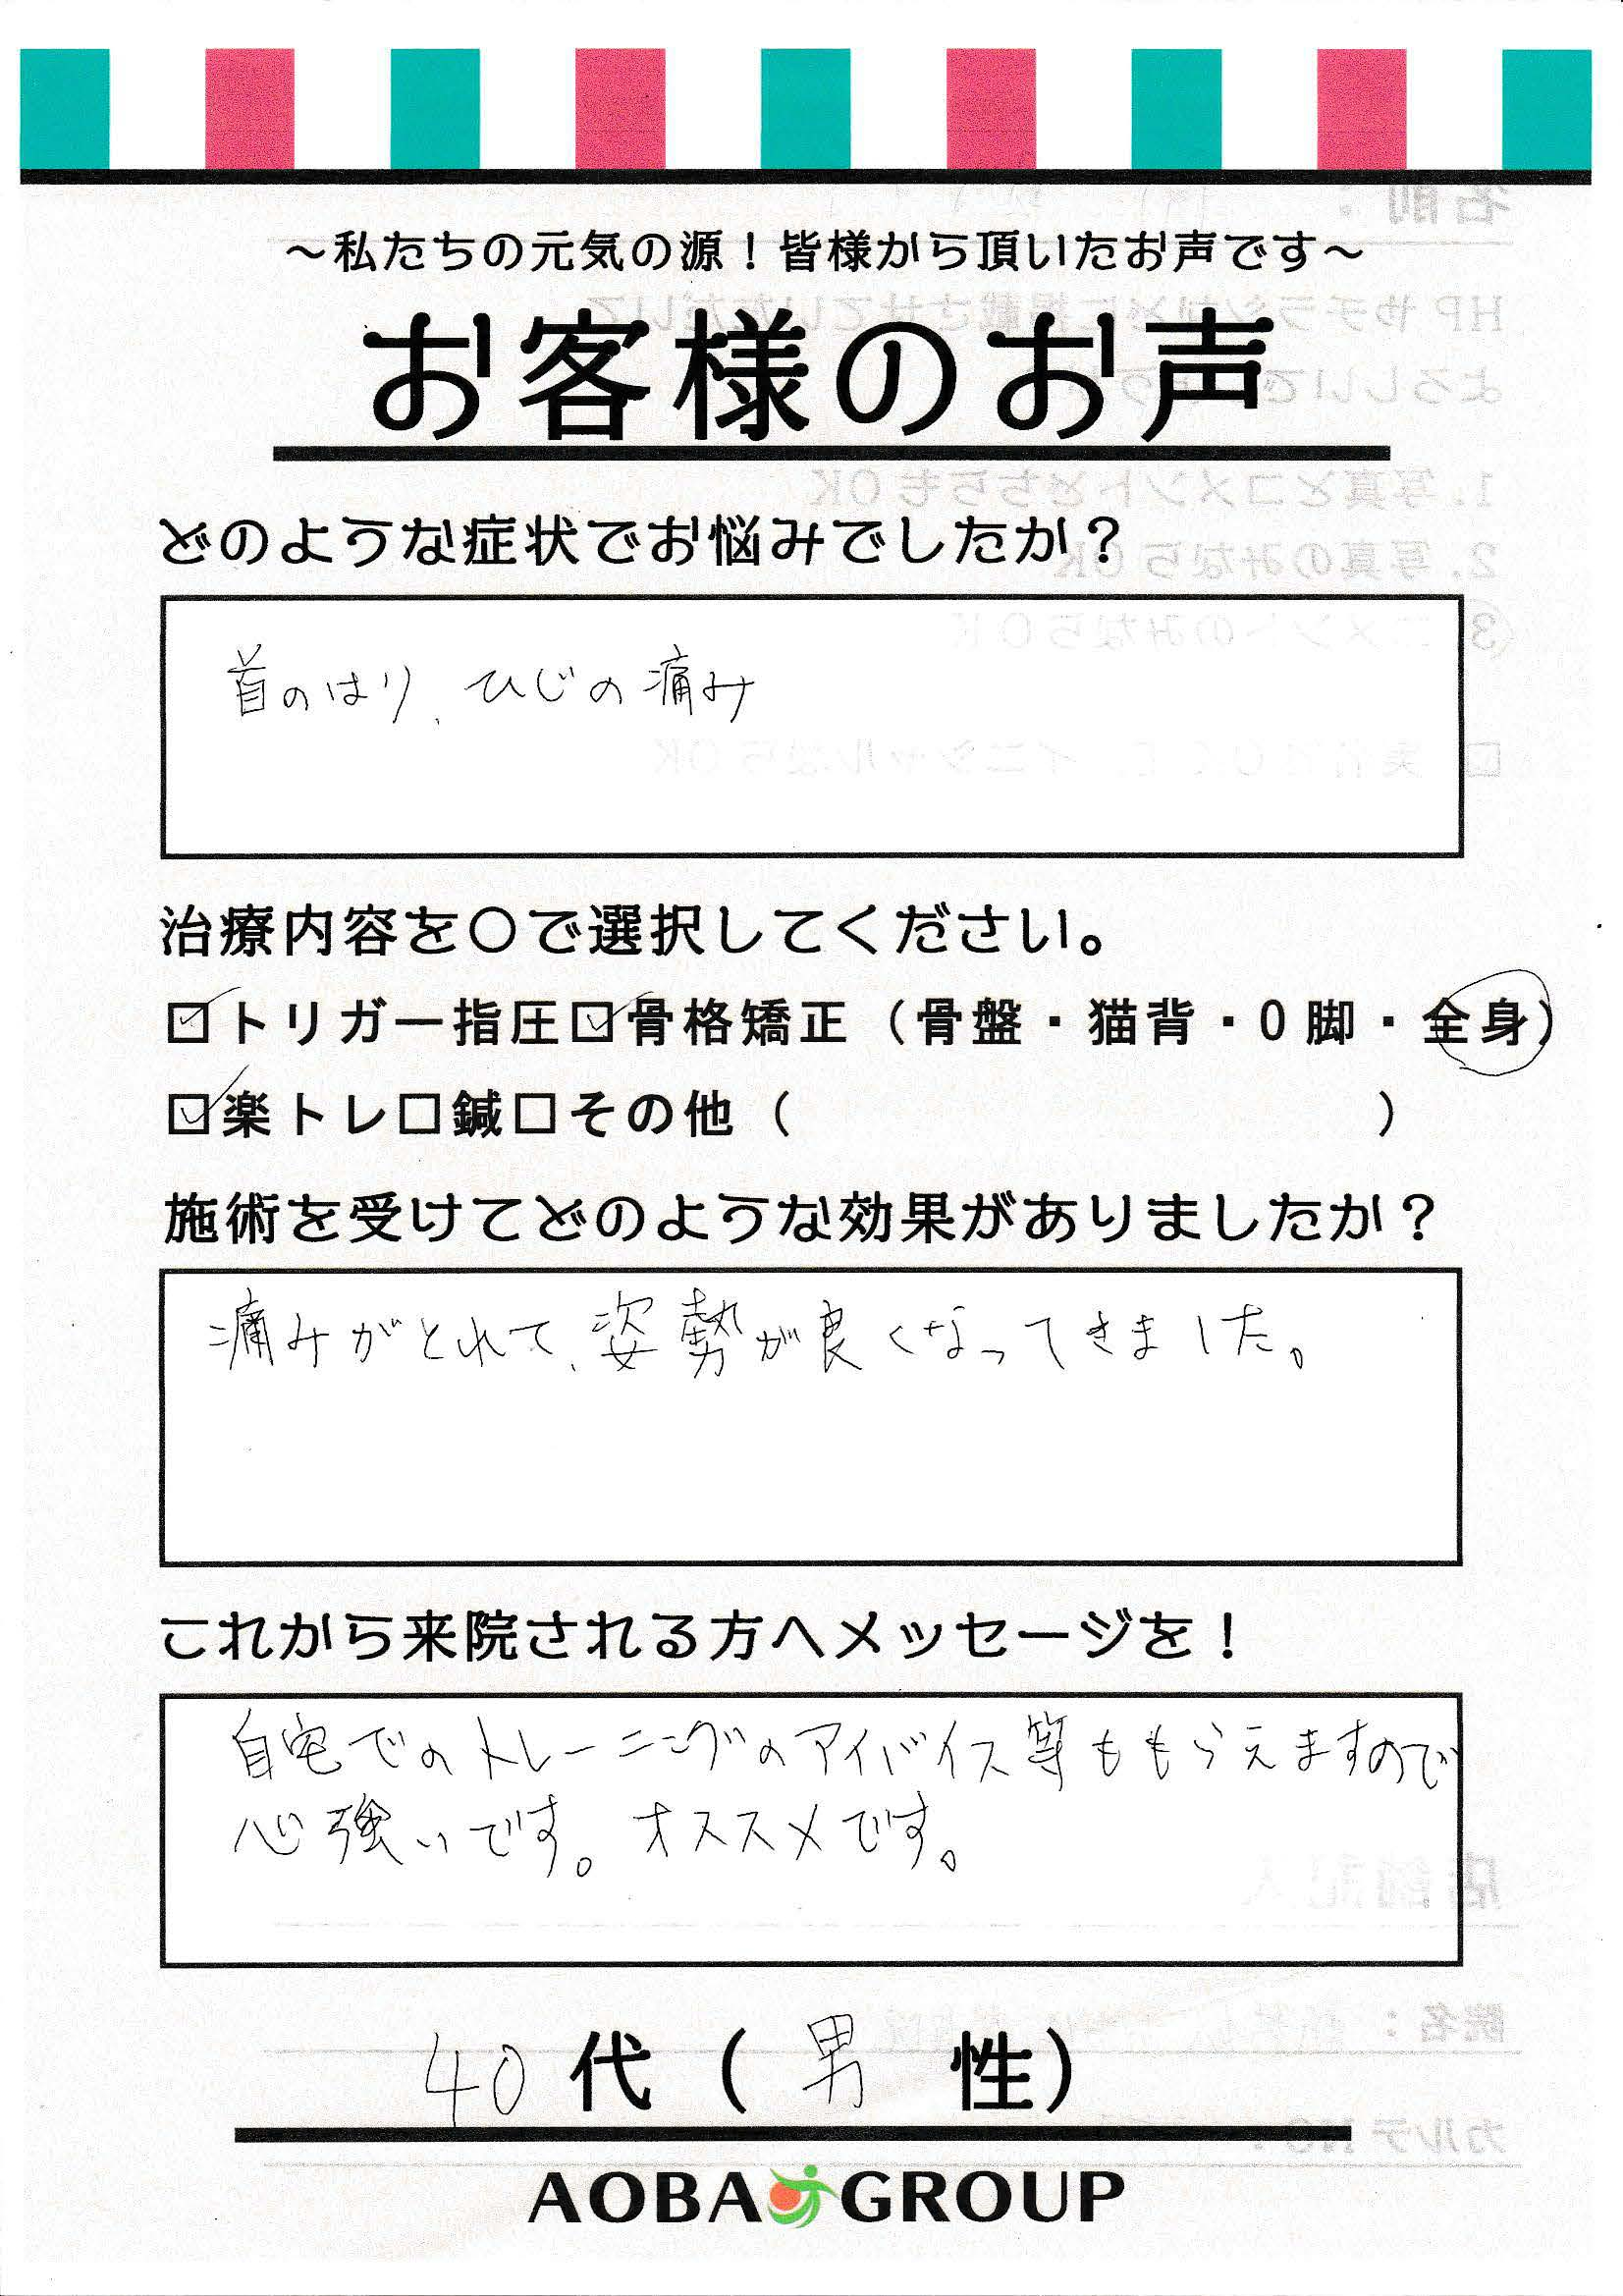 ～私たちの元気の源！皆様から頂いたお声です～
お客様のお声
どのような症状でお悩みでしたか？
首のはり、ひじの痛み
治療内容を〇で選択してください。
☑トリガー指圧☑骨格矯正（骨盤・猫背・O脚・全身）
☑楽トレ□鍼□その他（　　　　　　　　　　）
施術を受けてどのような効果がありましたか？
痛みがとれて、姿勢が良くなってきました。
これから来院される方へメッセージを！
自宅でのトレーニングのアイバイス等ももらえますので
心強いです。オススメです。
40代（男性）
AOBA GROUP